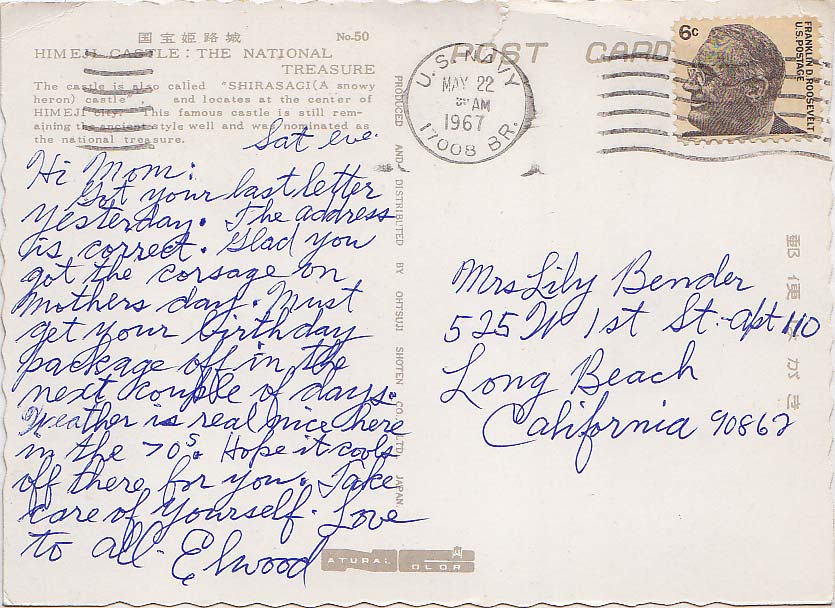 国宝姫路城 No.50
HIMEJI CASTLE: THE NATIONAL
TREASURE
The castle is also called "SHIRASAGI(A snowy
heron) castle", and locates at the center of
HIMEJI city. This famous castle is still rem-
aining the ancient style well and was nominated as
the national treasure.
Sat eve.
Hi Mom:
Got your last letter
yesterday. The address
is correct. Glad you
got the corsage on
Mothers day. Must
get your birthday
package off in the
next couple of days.
Weather is real nice here
in the 70s. Hope it cools
off there for you. Take
care of yourself. Love
to all. Elwood
PRODUCED AND DISTRIBUTED BY OHTSUJI SHOTEN CO., LTD. JAPAN.
NATURAL COLOR
POST CARD
U.S. NAVY
MAY 22
AM
1967
17008 BR.
6c
FRANKLIN D. ROOSEVELT
U.S. POSTAGE
郵便はがき
Mrs Lily Bender
525 W 1st St. Apt 110
Long Beach
California 90862